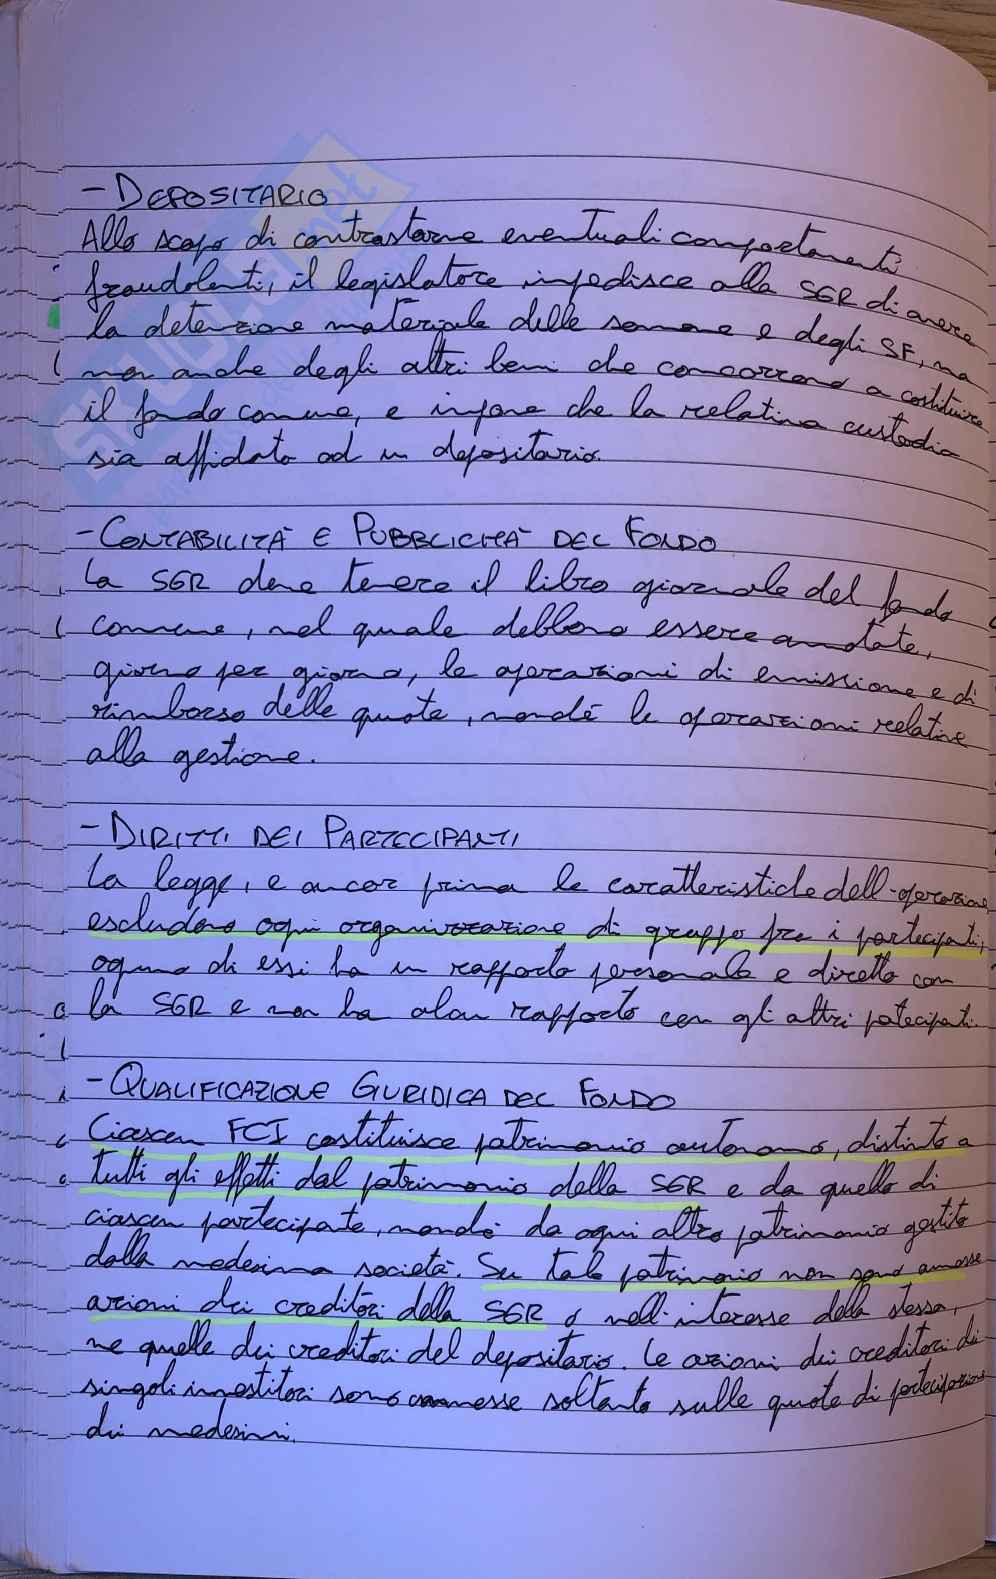 - DEPOSITARIO
Allo scopo di contrastare eventuali comportamenti
fraudolenti, il legislatore impedisce alla SGR di avere
la detenzione materiale delle somme e degli SF, ma
non anche degli altri beni che concorrono a costituire
il fondo comune, e impone che la relativa custodia
sia affidata ad un depositario.
- CONTABILITÀ E PUBBLICITÀ DEL FONDO
La SGR deve tenere il libro giornale del fondo
comune, nel quale debbono essere annotate,
giorno per giorno, le operazioni di emissione e di
rimborso delle quote, nonché le operazioni relative
alla gestione.
- DIRITTI DEI PARTECIPANTI
La legge, e ancor prima le caratteristiche dell'operazione
escludono ogni organizzazione di gruppo fra i partecipanti;
ognuno di essi ha un rapporto personale e diretto con
la SGR e non ha alcun rapporto con gli altri patecipanti.
- QUALIFICAZIONE GIURIDICA DEL FONDO
Ciascun FCI costituisce patrimonio autonomo, distinto a
tutti gli effetti dal patrimonio della SGR e da quello di
ciascun partecipate, nonché da ogni altro patrimonio gestito
dalla medesima società. Su tale patrimonio non sono ammesse
azioni dei creditori della SGR o nell'interesse della stessa,
ne quelle dei creditori del depositario. Le azioni dei creditori dei
singoli investitori sono ammesse soltanto sulle quote di partecipazione
dei medesimi.